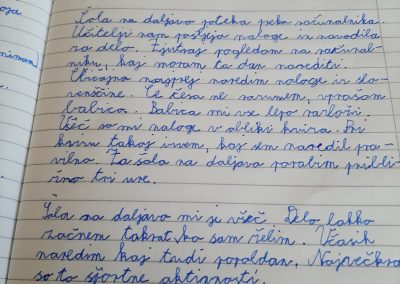 oja
niman)
Šola na daljavo poteka preko računalnika.
Učitelji nam pošljejo naloge in navodila
za delo. Zjutraj pogledam na računal-
niku, kaj moram ta dan narediti.
Običajno najprej naredim naloge iz slo-
venščine. Če česa ne razumem, vprašam
babico. Babica mi vse lepo razloži.
Všeč so mi naloge v obliki kviza. Pri
kvizu takoj izvem, kaj sem naredil pra-
vilno. Za šolo na daljavo porabim pribli-
žno tri ure.
Šola na daljavo mi je všeč. Delo lahko
začnem takrat ko sam želim. Včasih
naredim kaj tudi popoldan. Največkra
so to športne aktivnosti.